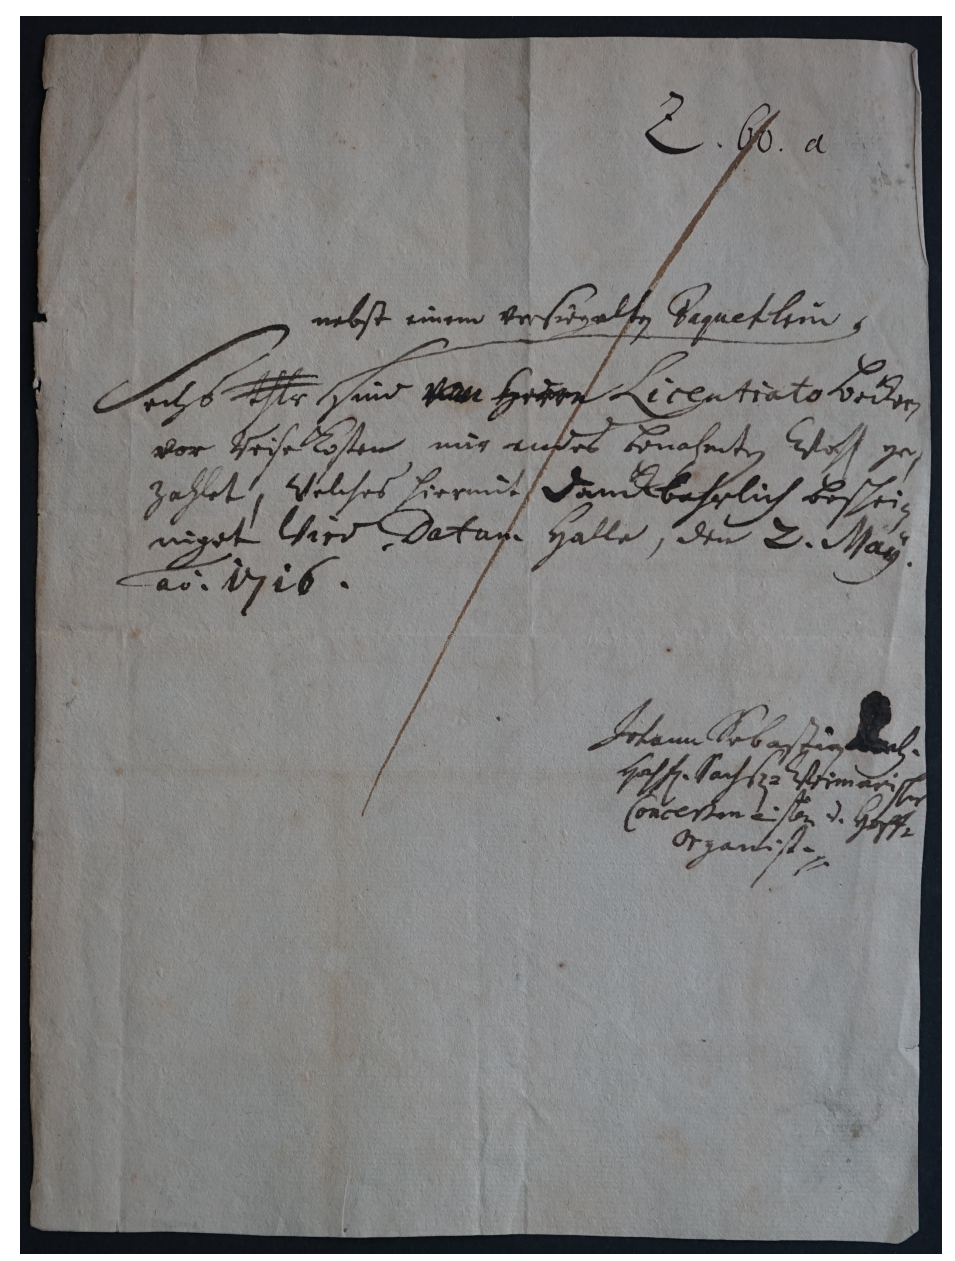 Z. 60. a
nebst einem versiegelten Paquetlein,
Sechs thlr sind von Herrn Licentiato Becker
vor Reise Kosten mir endes benahmten Wohl ge-
zahlet, Welches hiermit danckbahrlich beschei-
niget Wird. Datum. Halle, den 2. Maÿ.
ao. 1716.
Johann Sebastian Bach.
Hochf. Sachsz. Weimarischer
Concertmeister u. Hoff-
Organist.